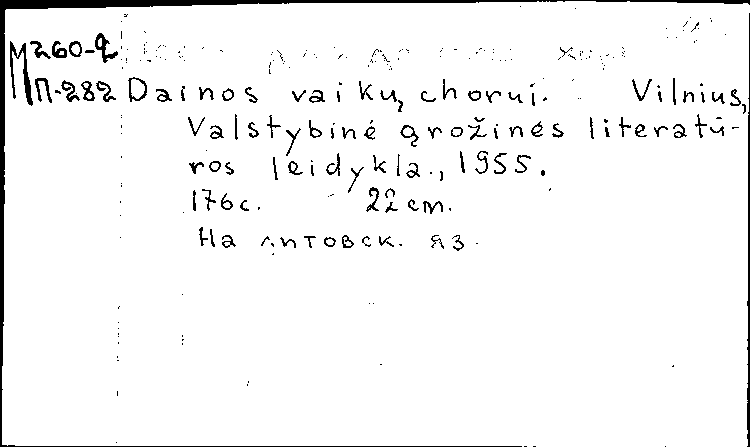 М260-2
П-282 Dainos vaikų chorui. Vilnius,
Valstybinė grožinės literatū-
ros leidykla., 1955.
176 с. 22 cm.
На литовск. яз.